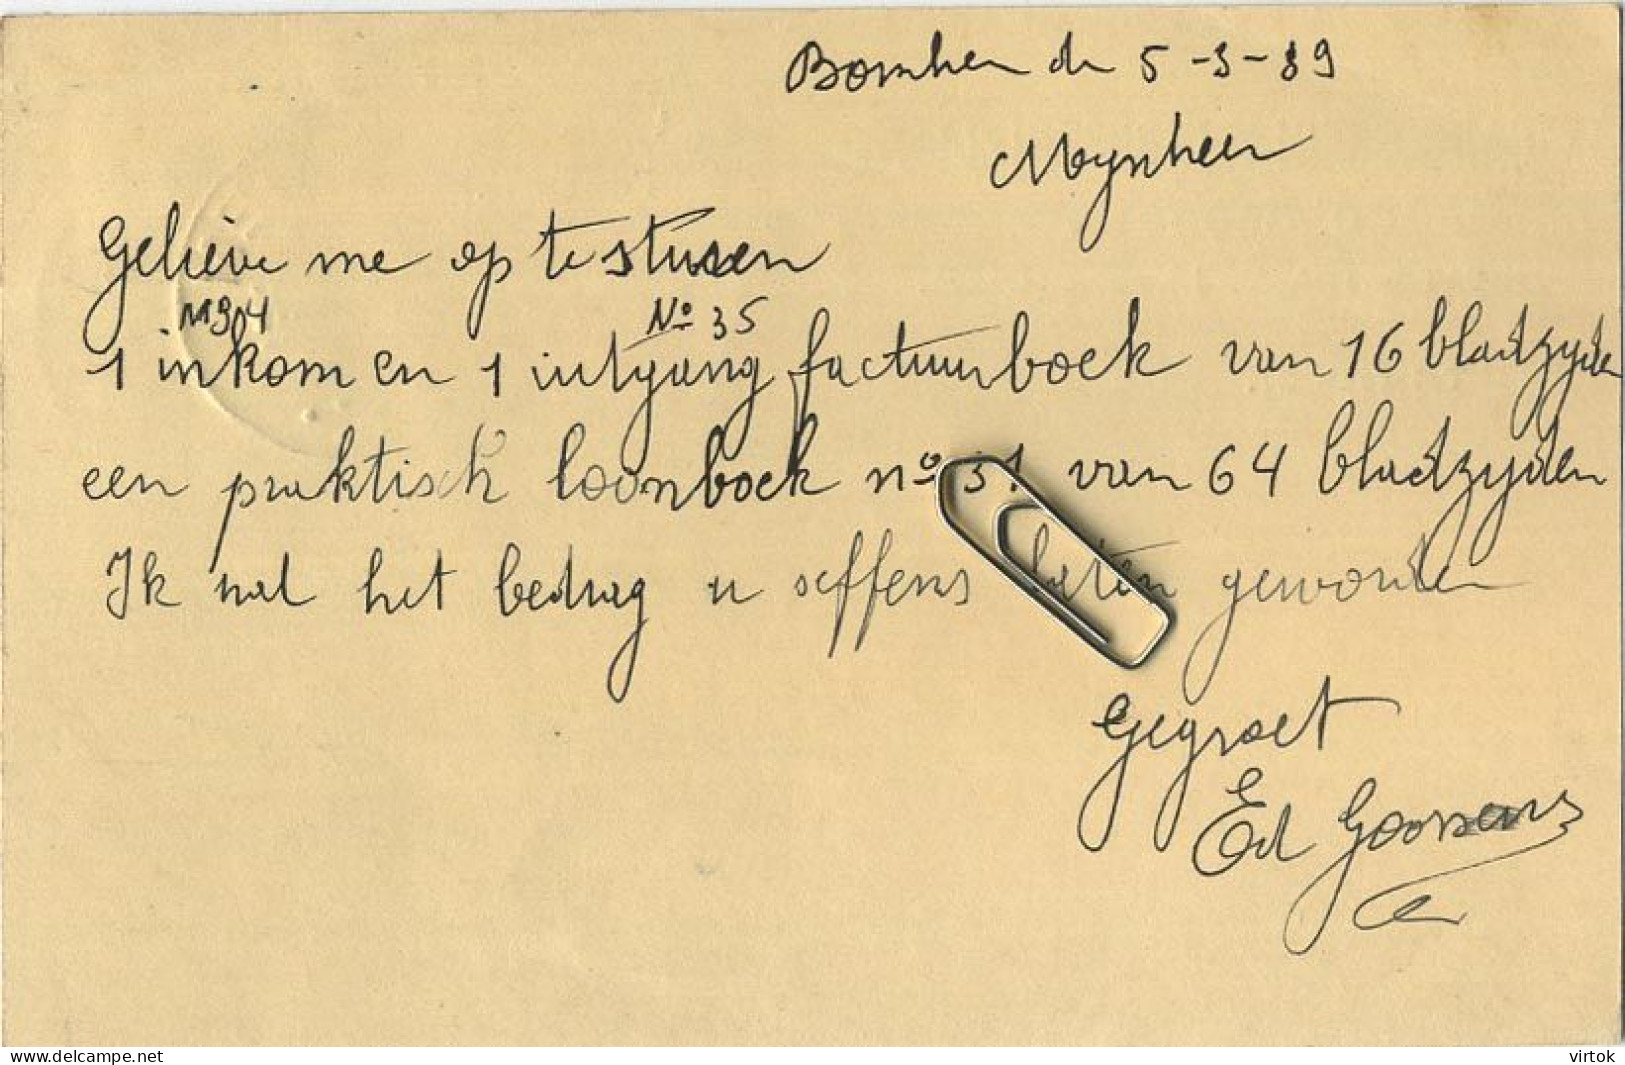 Bornhem de 5-3-39
Mynheer
Gelieve me op te sturen
N34 No 35
1 inkom en 1 uitgang factuurboek van 16 bladzyden
een praktisch loonboek no 31 van 64 bladzyden
Ik zal het bedrag u seffens laten geworden
Gegroet
Ed Goossens
www.delcampe.net
virtok